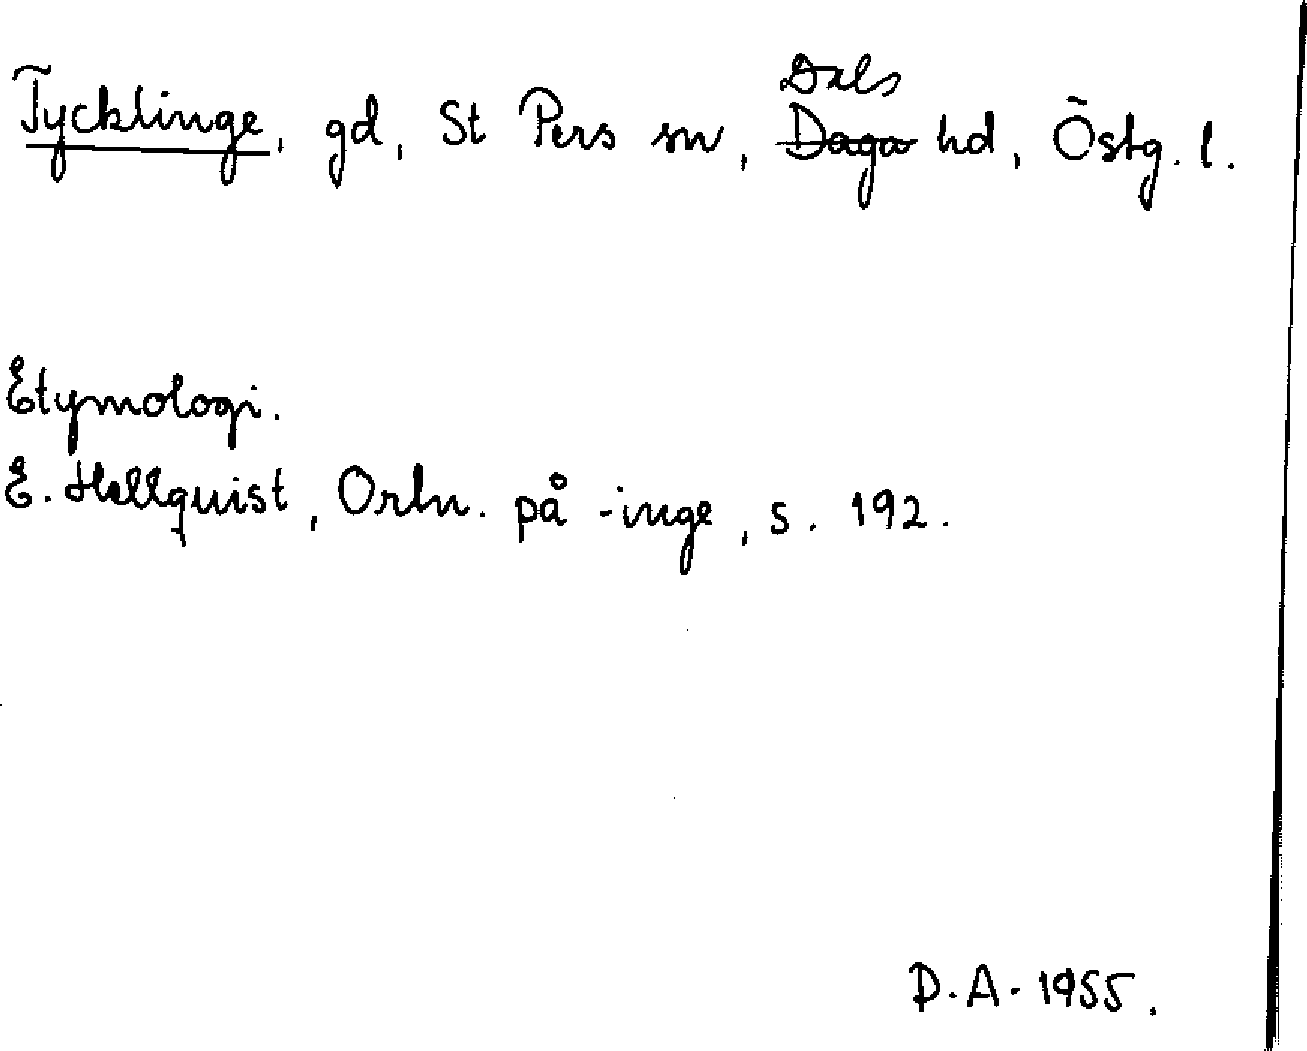 Tycklinge, gd, St Pers sn, Dals hd, Östg. l.
Etymologi.
E. Hellquist, Ortn. på -inge, s. 192.
D.A. 1955.